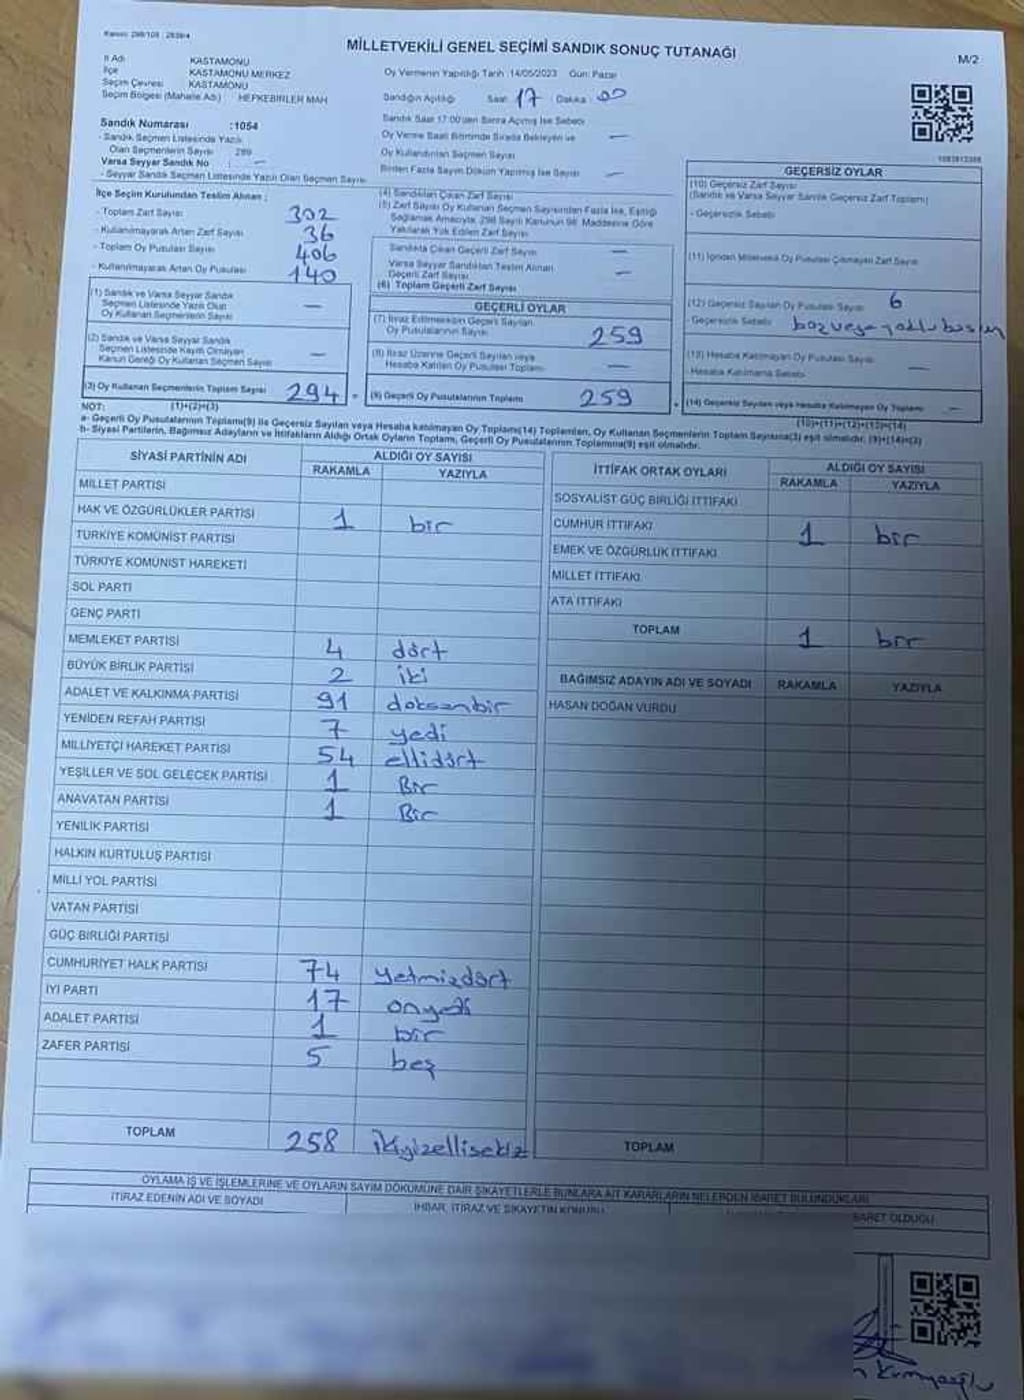 Kanun: 298/105 : 2839/4
MİLLETVEKİLİ GENEL SEÇİMİ SANDIK SONUÇ TUTANAĞI
M/2
İl Adı KASTAMONU
İlçe KASTAMONU MERKEZ
Seçim Çevresi KASTAMONU
Seçim Bölgesi (Mahalle Adı) HEPKEBİRLER MAH
Oy Vermenin Yapıldığı Tarih :14/05/2023 Gün: Pazar
Sandığın Açıldığı Saat 17 Dakika 00
Sandık Saat 17:00'den Sonra Açılmış İse Sebebi
Oy Verme Saati Bitiminde Sırada Bekleyen ve —
Oy Kullandırılan Seçmen Sayısı
Birden Fazla Sayım Döküm Yapılmış İse Sayısı —
Sandık Numarası :1054
- Sandık Seçmen Listesinde Yazılı
Olan Seçmenlerin Sayısı 299
Varsa Seyyar Sandık No : —
- Seyyar Sandık Seçmen Listesinde Yazılı Olan Seçmen Sayısı
İlçe Seçim Kurulundan Teslim Alınan ;
- Toplam Zarf Sayısı 302
- Kullanılmayarak Artan Zarf Sayısı 36
- Toplam Oy Pusulası Sayısı 406
- Kullanılmayarak Artan Oy Pusulası 140
(1) Sandık ve Varsa Seyyar Sandık
Seçmen Listesinde Yazılı Olup
Oy Kullanan Seçmenlerin Sayısı —
(2) Sandık ve Varsa Seyyar Sandık
Seçmen Listesinde Kayıtlı Olmayan
Kanun Gereği Oy Kullanan Seçmen Sayısı —
(3) Oy Kullanan Seçmenlerin Toplam Sayısı 294 =
(1)+(2)=(3)
(4) Sandıktan Çıkan Zarf Sayısı
(5) Zarf Sayısı Oy Kullanan Seçmen Sayısından Fazla İse, Eşitliği
Sağlamak Amacıyla, 298 Sayılı Kanunun 98. Maddesine Göre
Yakılarak Yok Edilen Zarf Sayısı
Sandıkta Çıkan Geçerli Zarf Sayısı —
Varsa Seyyar Sandıktan Teslim Alınan
Geçerli Zarf Sayısı —
(6) Toplam Geçerli Zarf Sayısı
GEÇERLİ OYLAR
(7) İtiraz Edilmeksizin Geçerli Sayılan
Oy Pusulalarının Sayısı 259
(8) İtiraz Üzerine Geçerli Sayılan veya
Hesaba Katılan Oy Pusulası Toplamı —
(9) Geçerli Oy Pusulalarının Toplamı 259 +
GEÇERSİZ OYLAR
(10) Geçersiz Zarf Sayısı
(Sandık ve Varsa Seyyar Sandık Geçersiz Zarf Toplamı)
- Geçersizlik Sebebi
(11) İçinden Milletvekili Oy Pusulası Çıkmayan Zarf Sayısı
(12) Geçersiz Sayılan Oy Pusulası Sayısı 6
- Geçersizlik Sebebi
(13) Hesaba Katılmayan Oy Pusulası Sayısı —
- Hesaba Katılmama Sebebi
(14) Geçersiz Sayılan veya Hesaba Katılmayan Oy Toplamı —
(10)+(11)+(12)+(13)=(14)
NOT:
a- Geçerli Oy Pusulalarının Toplamı(9) ile Geçersiz Sayılan veya Hesaba katılmayan Oy Toplamı(14) Toplamları, Oy Kullanan Seçmenlerin Toplam Sayısına(3) eşit olmalıdır. (9)+(14)=(3)
b- Siyasi Partilerin, Bağımsız Adayların ve İttifakların Aldığı Ortak Oyların Toplamı, Geçerli Oy Pusulalarının Toplamına(9) eşit olmalıdır.
SİYASİ PARTİNİN ADI ALDIĞI OY SAYISI
RAKAMLA YAZIYLA
MİLLET PARTİSİ
HAK VE ÖZGÜRLÜKLER PARTİSİ 1 bir
TÜRKİYE KOMÜNİST PARTİSİ
TÜRKİYE KOMÜNİST HAREKETİ
SOL PARTİ
GENÇ PARTİ
MEMLEKET PARTİSİ 4 dört
BÜYÜK BİRLİK PARTİSİ 2 iki
ADALET VE KALKINMA PARTİSİ 91 doksanbir
YENİDEN REFAH PARTİSİ 7 yedi
MİLLİYETÇİ HAREKET PARTİSİ 54 ellidört
YEŞİLLER VE SOL GELECEK PARTİSİ 1 Bir
ANAVATAN PARTİSİ 1 Bir
YENİLİK PARTİSİ
HALKIN KURTULUŞ PARTİSİ
MİLLİ YOL PARTİSİ
VATAN PARTİSİ
GÜÇ BİRLİĞİ PARTİSİ
CUMHURİYET HALK PARTİSİ 74 yetmişdört
İYİ PARTİ 17 onyedi
ADALET PARTİSİ 1 bir
ZAFER PARTİSİ 5 beş
TOPLAM 258 ikiyüzellisekiz
İTTİFAK ORTAK OYLARI ALDIĞI OY SAYISI
RAKAMLA YAZIYLA
SOSYALİST GÜÇ BİRLİĞİ İTTİFAKI
CUMHUR İTTİFAKI 1 bir
EMEK VE ÖZGÜRLÜK İTTİFAKI
MİLLET İTTİFAKI
ATA İTTİFAKI
TOPLAM 1 bir
BAĞIMSIZ ADAYIN ADI VE SOYADI RAKAMLA YAZIYLA
HASAN DOĞAN VURDU
TOPLAM
OYLAMA İŞ VE İŞLEMLERİNE VE OYLARIN SAYIM DÖKÜMÜNE DAİR ŞİKAYETLERLE BUNLARA AİT KARARLARIN NELERDEN İBARET BULUNDUKLARI
İTİRAZ EDENİN ADI VE SOYADI İHBAR, İTİRAZ VE ŞİKAYETİN KONUSU BARET OLDUĞU